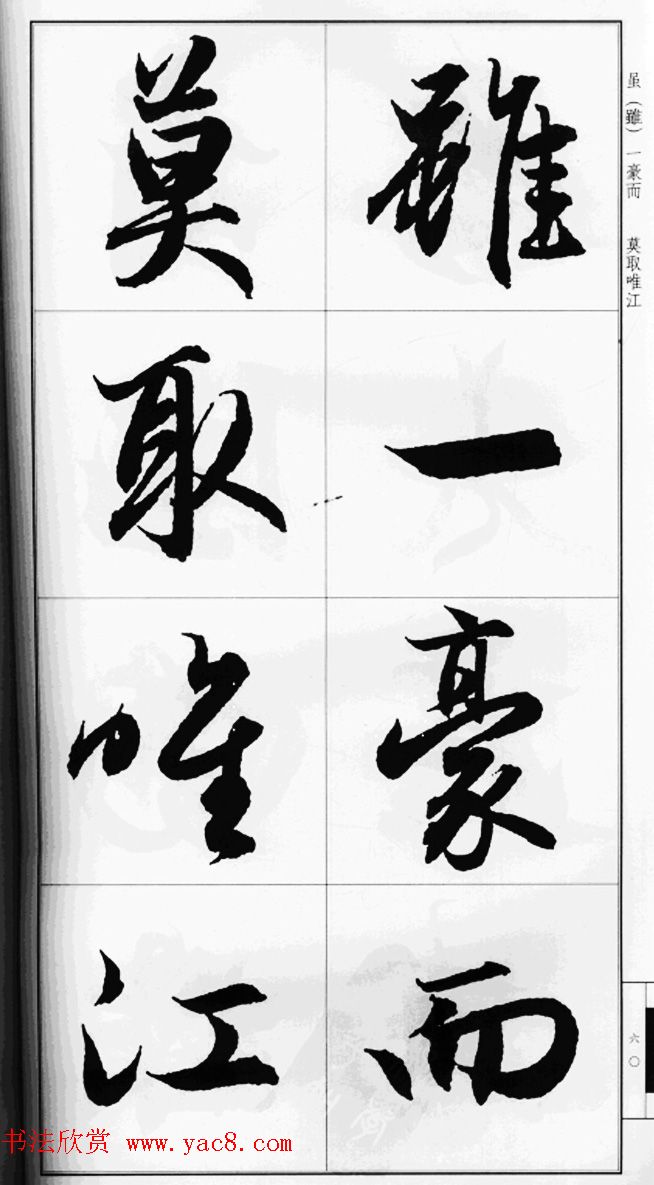 虽（雖）一豪而　莫取唯江
雖一豪而
莫取唯江
六〇
书法欣赏 www.yac8.com